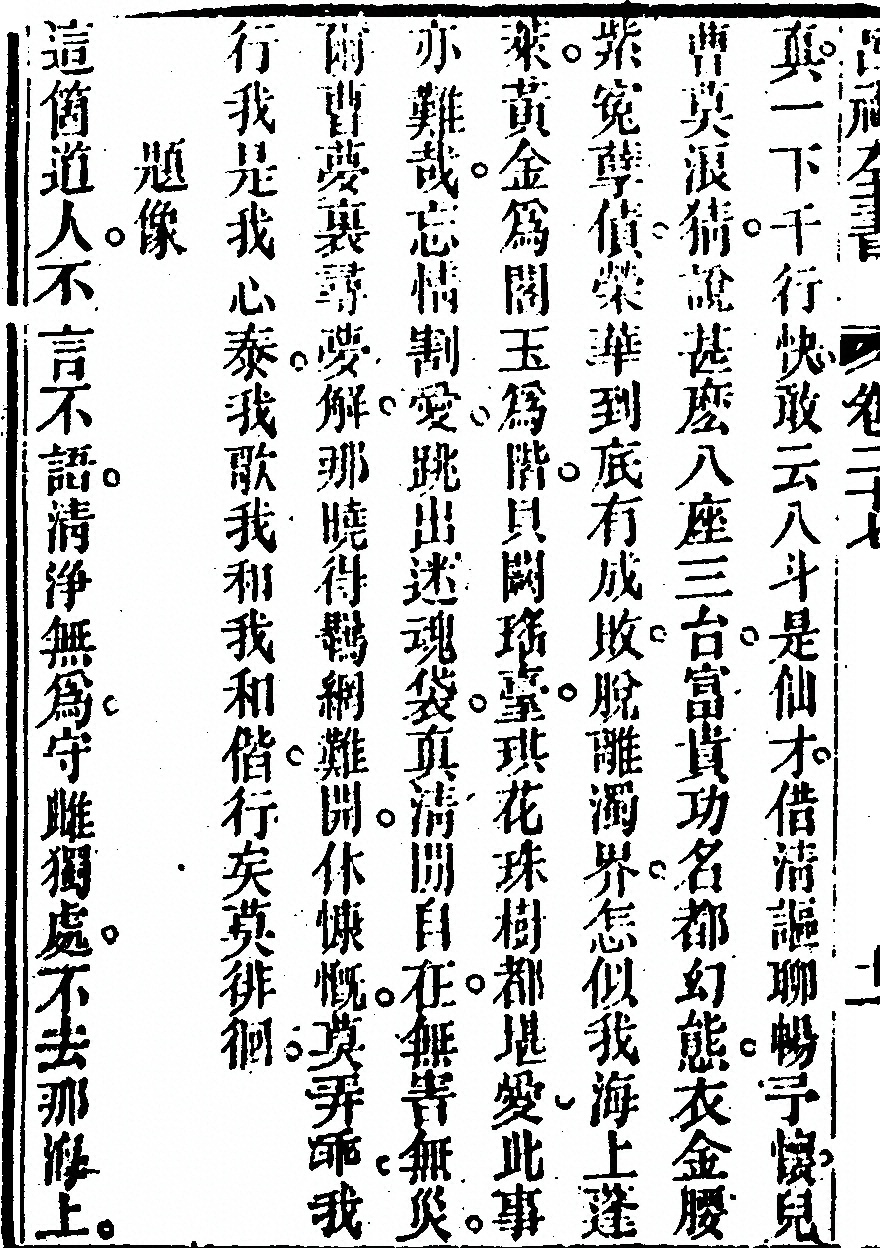 呂祖全書 卷二十七
真一下千行快敢云八斗是仙才借清謳聊暢予懷兒
曹莫浪猜說甚麼八座三台富貴功名都幻態衣金腰
紫冤孽債榮華到底有成敗脫離濁界怎似我海上蓬
萊黃金爲閣玉爲階貝闕瑤臺琪花珠樹都堪愛此事
亦難哉忘情割愛跳出迷魂袋真清閒自在無害無災
爾曹夢裏尋夢解那曉得羈網難開休慷慨莫弄乖我
行我是我心泰我歌我和我和偕行矣莫徘徊
題像
這箇道人不言不語清淨無爲守雌獨處不去那海上